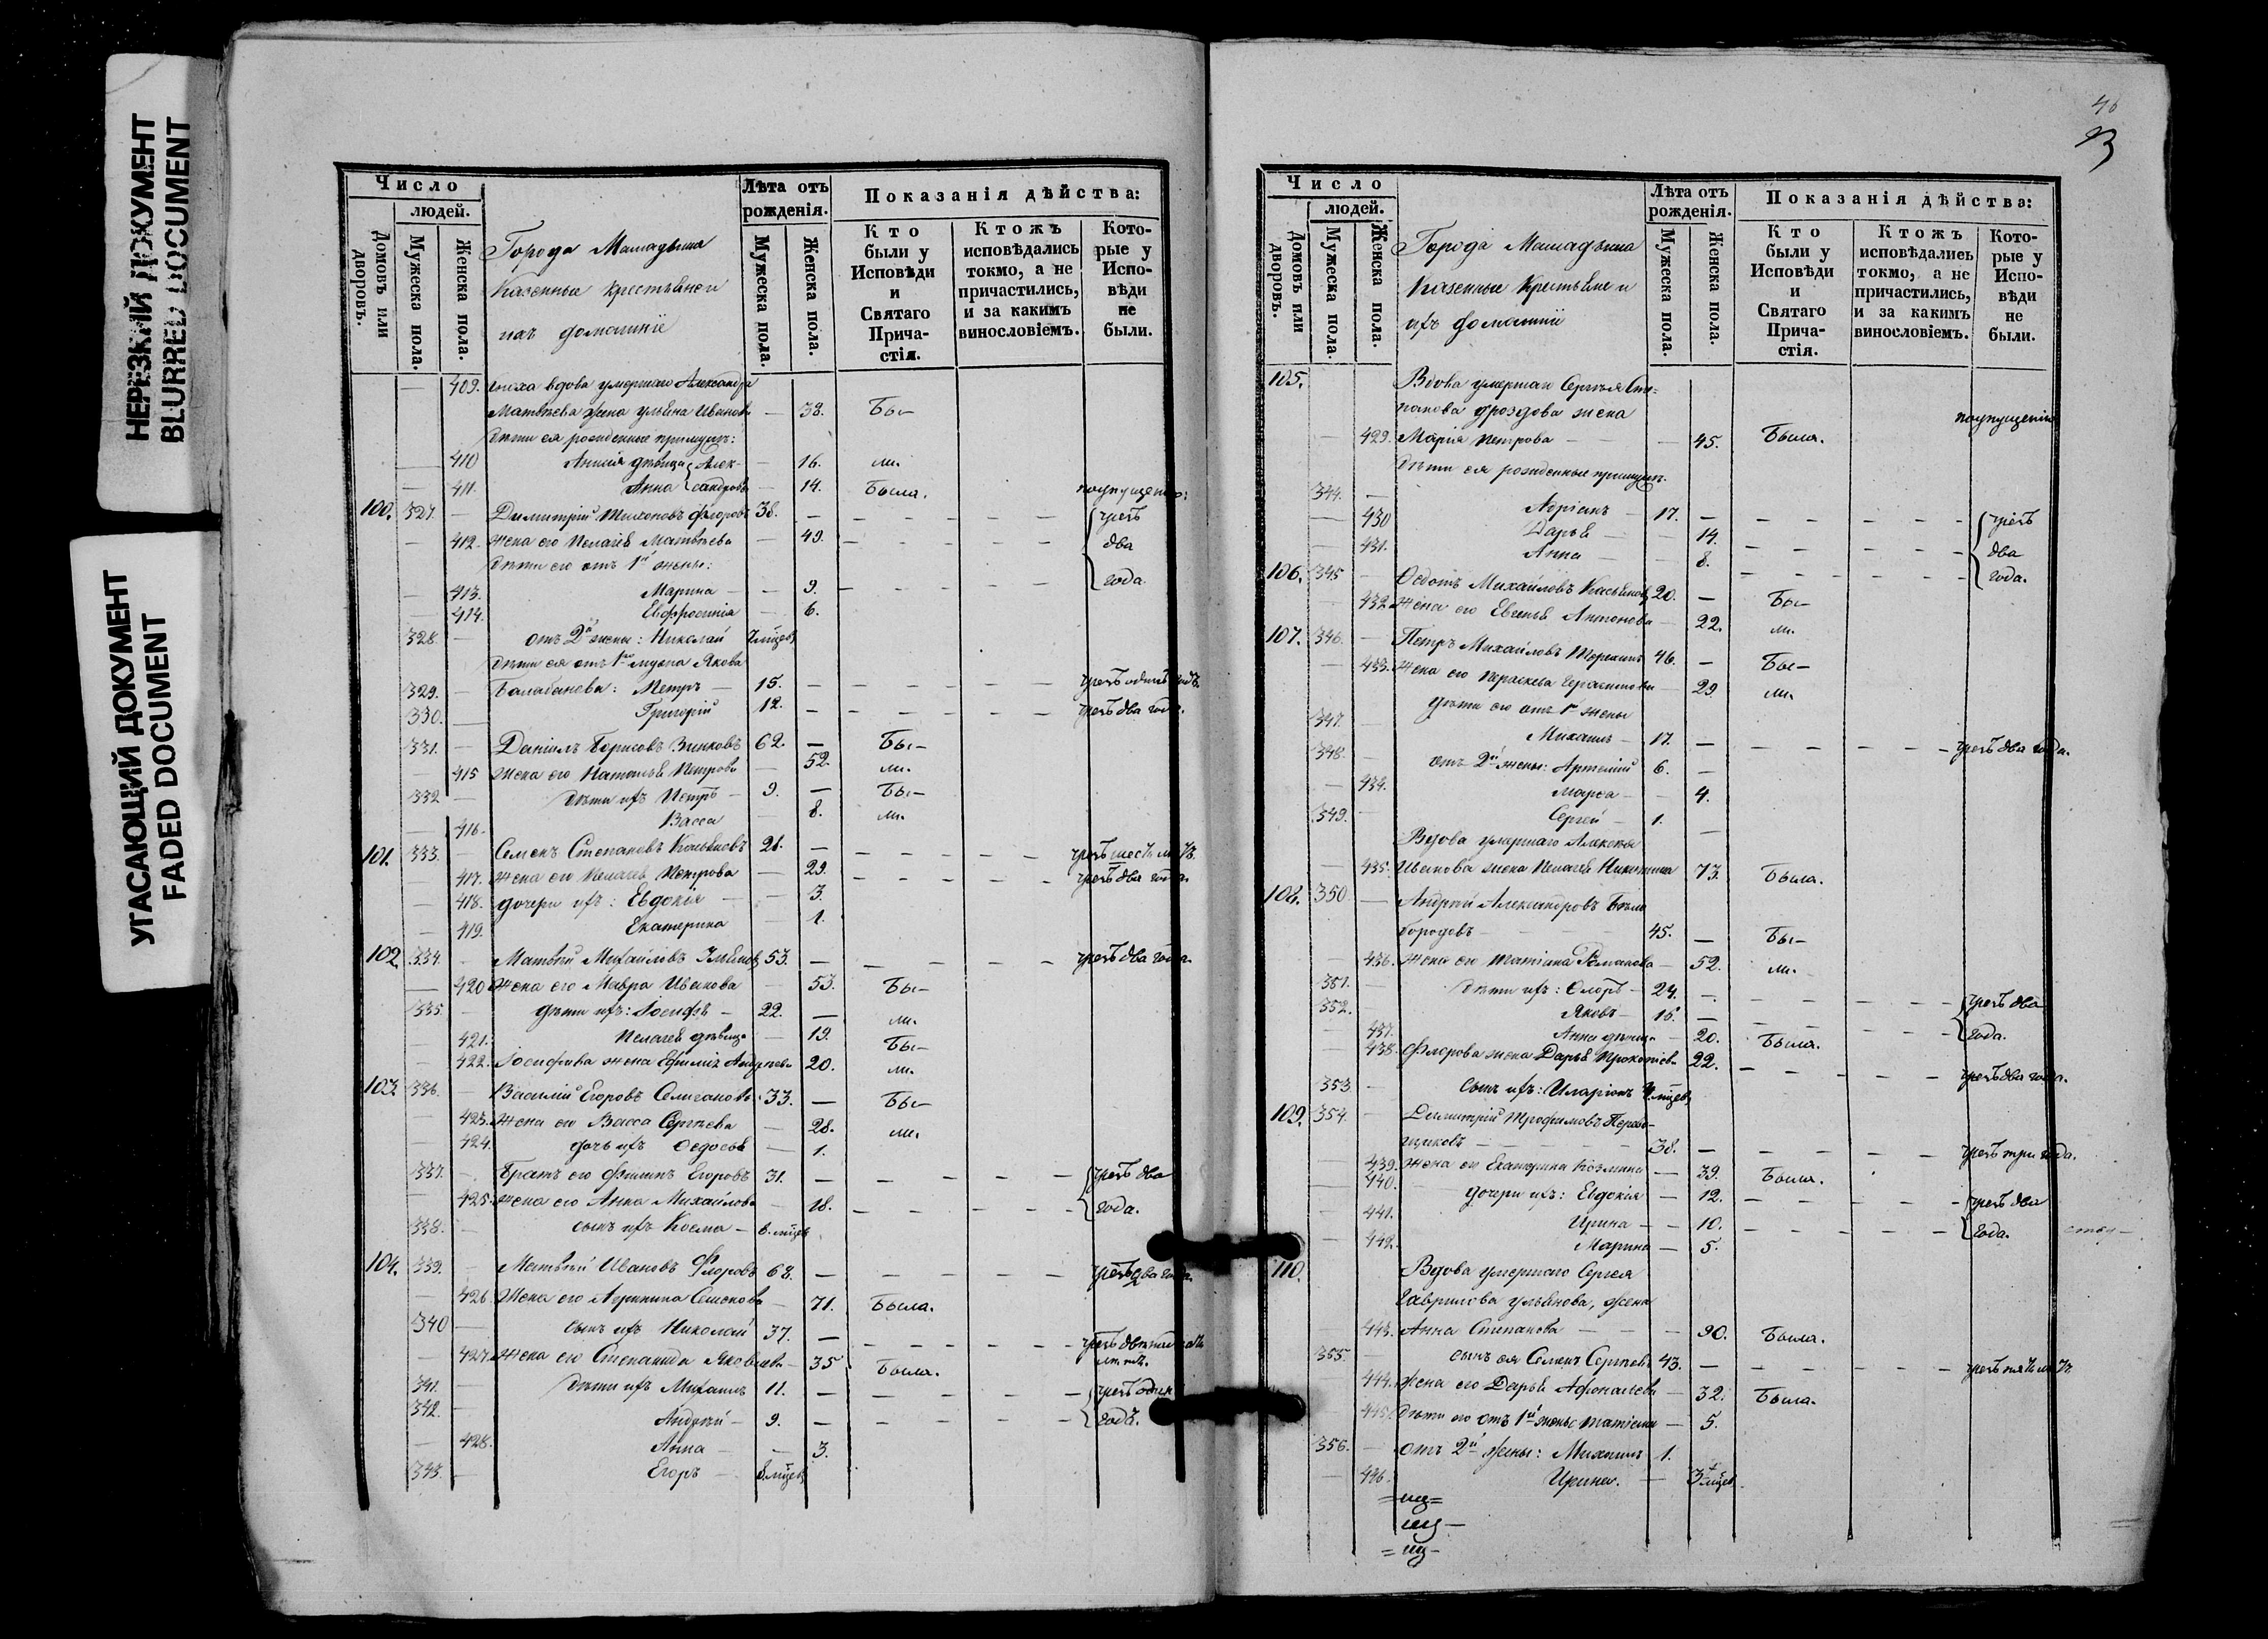 НЕРЕЗКИЙ ДОКУМЕНТ
BLURRED DOCUMENT
УГАСАЮЩИЙ ДОКУМЕНТ
FADED DOCUMENT
Число
людей.
Домовъ или дворовъ.
Мужеска пола.
Женска пола.
Города Мамадыша
Казенные крестьяне и
ихъ домашніе
Лѣта отъ рожденія.
Мужеска пола.
Женска пола.
Показанія дѣйства:
Кто были у Исповѣди и Святаго Прича-стія.
Ктожъ исповѣдались токмо, а не причастились, и за какимъ винословіемъ.
Кото-рые у Испо-вѣди не были.
409. вдова умершаго Александра
Матвѣева жена Ульяна Иванова — 38. Бы-
дѣти ея рожденные прижиты:
410 девица Алек- — 16. ли.
411. Анна сандровы — 14. Была.
100. 327. — Димитрій Тихоновъ Флоровъ 38. — чрезъ
412. жена его Пелагея Матвѣева — 49. два
дѣти его отъ 1й жены: года.
413. Марина — 9.
414. Евфросинія — 6.
328 — отъ 2й жены: Николай
дѣти ея отъ 1го мужа Якова
329. — Балабанова: Петръ — 15. — чрезъ одинъ годъ.
330. — Григорій 12. — чрезъ два года.
331. — Даніилъ Борисовъ 62. — Бы-
415 жена его Наталья Петрова — 52. ли.
332 — дѣти ихъ Петръ — 9. — Бы-
416. Васса — 8. ли.
101. 333. — Семенъ Степановъ 21. — чрезъ шесть лѣтъ.
417. жена его Пелагея Петрова — 29. чрезъ два года.
418. дочери ихъ: Евдокія — 3.
419. Екатерина 1.
102. 334. — Матвѣй Михайловъ 53. — чрезъ два года.
420 жена его Мавра Иванова — 53. Бы-
335 — дѣти ихъ: Іосифъ — 22. — ли.
421. Пелагея дѣвица — 19. Бы-
422. Іосифова жена Евфимія Андреева 20. ли.
103 336. — Василій Егоровъ 33. — Бы-
423. жена его Васса Сергѣева — 28. ли.
424. дочь ихъ Федосья — 1.
337. — Братъ его Филипъ Егоровъ 31. — чрезъ два
425. жена его Анна Михайлова 18. года.
338. — сынъ ихъ Косма —
104. 339. — Матвѣй Ивановъ Флоровъ 68. — чрезъ два года.
426. Жена его Агрипина Семенова — 71. Была.
340 — сынъ ихъ Николай 37. —
427. жена его Степанида Яковлева — 35 Была.
341. — дѣти ихъ Михаилъ 11. — чрезъ одинъ
342. — Андрей — 9. — годъ.
428. Анна — 3.
343. — Егоръ —
46
Число
людей.
Домовъ или дворовъ.
Мужеска пола.
Женска пола.
Города Мамадыша
Казенные крестьяне и
ихъ домашніе
Лѣта отъ рожденія.
Мужеска пола.
Женска пола.
Показанія дѣйства:
Кто были у Исповѣди и Святаго Прича-стія.
Ктожъ исповѣдались токмо, а не причастились, и за какимъ винословіемъ.
Кото-рые у Испо-вѣди не были.
105. Вдова умершаго Сергѣя Сте-
панова Дроздова жена
429. Марія Петрова — 45. Была.
дѣти ея рожденные прижиты.
344. — Адріанъ — 17. — чрезъ
430 Дарья — 14. два
431. Анна — 8. года.
106. 345 — Федотъ Михайловъ 20. — Бы-
432 жена его Евгенья Антонова — 22. ли.
107. 346. — Петръ Михайловъ 46. — Бы-
433. жена его Параскева Герасимова — 29 ли.
дѣти его отъ 1й жены
347. — Михаилъ — 17. — чрезъ два года.
348. — отъ 2й жены: Артемій 6. —
434. Марѳа — 4.
349. — Сергей — 1.
Вдова умершаго Алексѣя
435. Иванова жена Пелагея Никитина 73. Была.
108. 350 — Андрей Александровъ Бѣло
бородовъ — 45. — Бы-
436. жена его Татіана Романова — 52. ли.
351. — дѣти ихъ: Флоръ — 24. — чрезъ два
352. — Яковъ — 15. — года.
437. Анна дѣвица 20. Была.
438. Флорова жена Дарья Прокопіева 22. чрезъ два года.
353. — сынъ ихъ: Иларіонъ
109. 354. — Димитрій Трофимовъ Перево-
щиковъ — 38. — чрезъ три года.
439. жена его Екатерина Козмина — 39. Была.
440. дочери ихъ: Евдокія — 12. чрезъ два
441. Ирина — 10. года.
442. Марина — 5.
110. Вдова умершаго Сергея
Гаврилова Ульянова, жена
443. Анна Степанова — 90. Была.
355. — сынъ ея Семенъ Сергѣевъ 43. — чрезъ пять лѣтъ
444. жена его Дарья Афонасьева — 32. Была.
445. дѣти его отъ 1й жены Татіана — 5.
356. — отъ 2й жены: Михаилъ 1.
446. Ирина. —